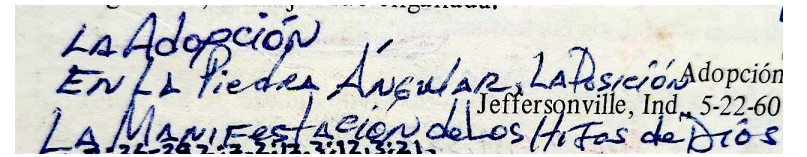 LA Adopción
EN LA Piedra ÁNGULAR, LA Posición
Adopción
Jeffersonville, Ind., 5-22-60
LA MANIFestAción de Los HiJos de Dios